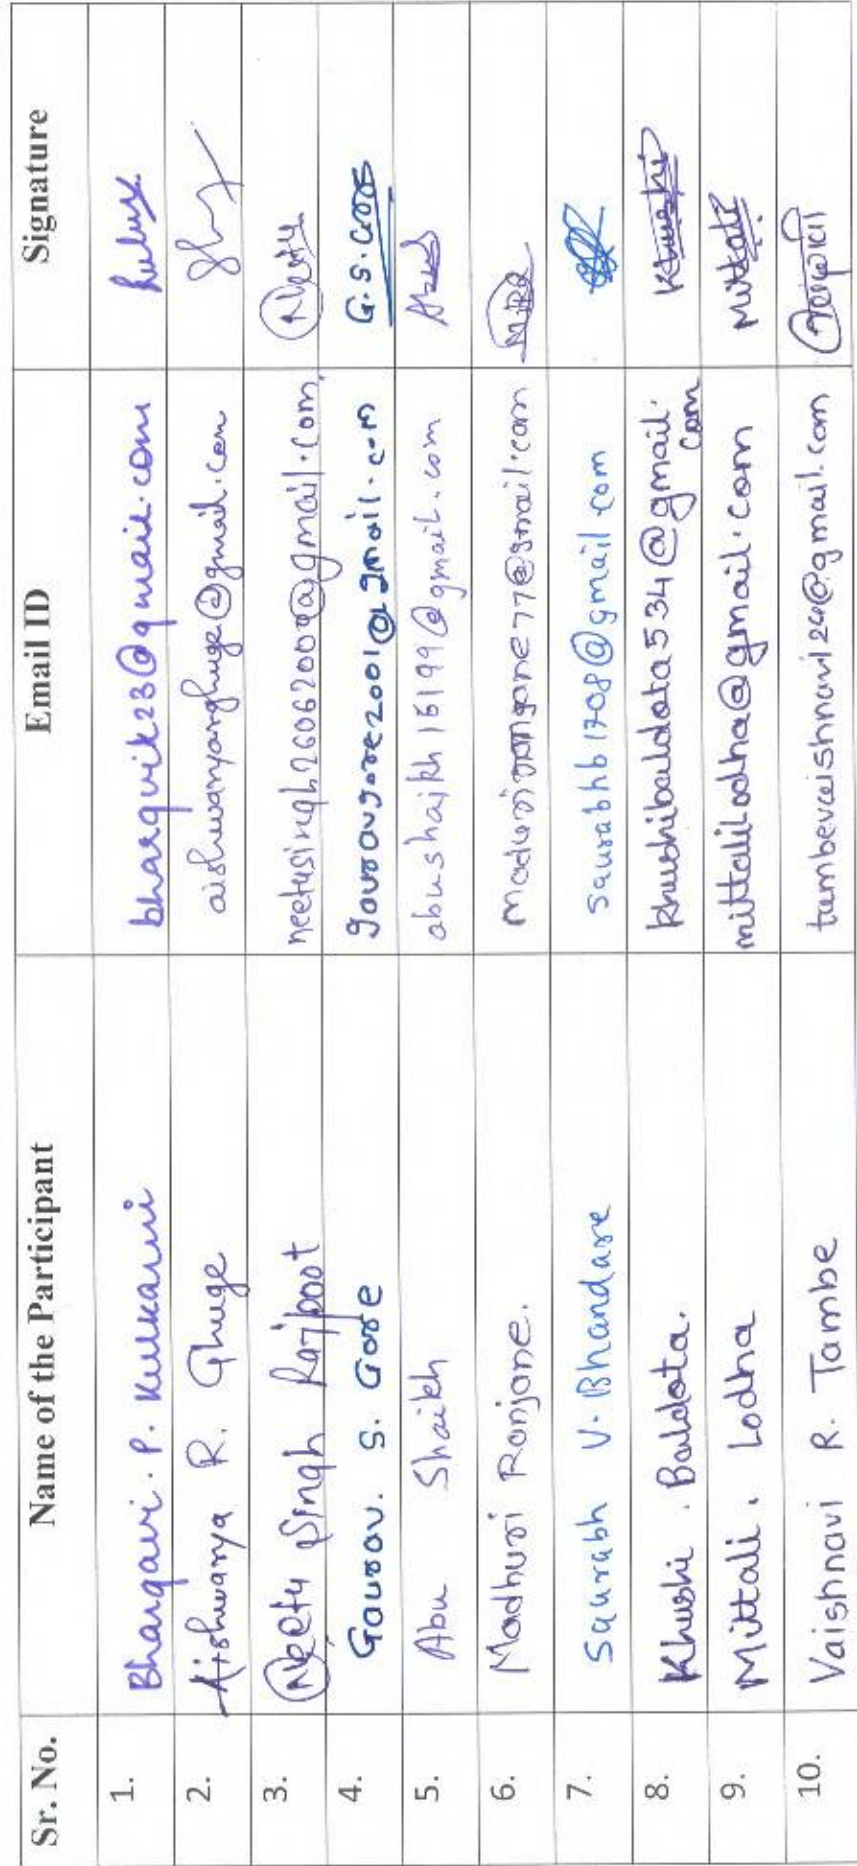 Sr. No. Name of the Participant Email ID Signature
1. Bhargavi. P. Kulkarni bhargvik23@gmail.com
2. Aishwarya R. Ghuge aishwaryarghuge@gmail.com
3. Neetu Singh Rajpoot neetusingh2606200@gmail.com. Neetu
4. Gaurav. S. Gore gouravgore2001@gmail.com G.S.Gore
5. Abu Shaikh abushaikh15199@gmail.com
6. Madhuri Ranjane.
7. Saurabh V. Bhandare saurabhb1708@gmail.com
8. Khushi . Baldota. khushibaldota534@gmail.
com Khushi
9. Mittali . Lodha mittalilodha@gmail.com Mittali
10. Vaishnavi R. Tambe tambevaishnavi24@gmail.com